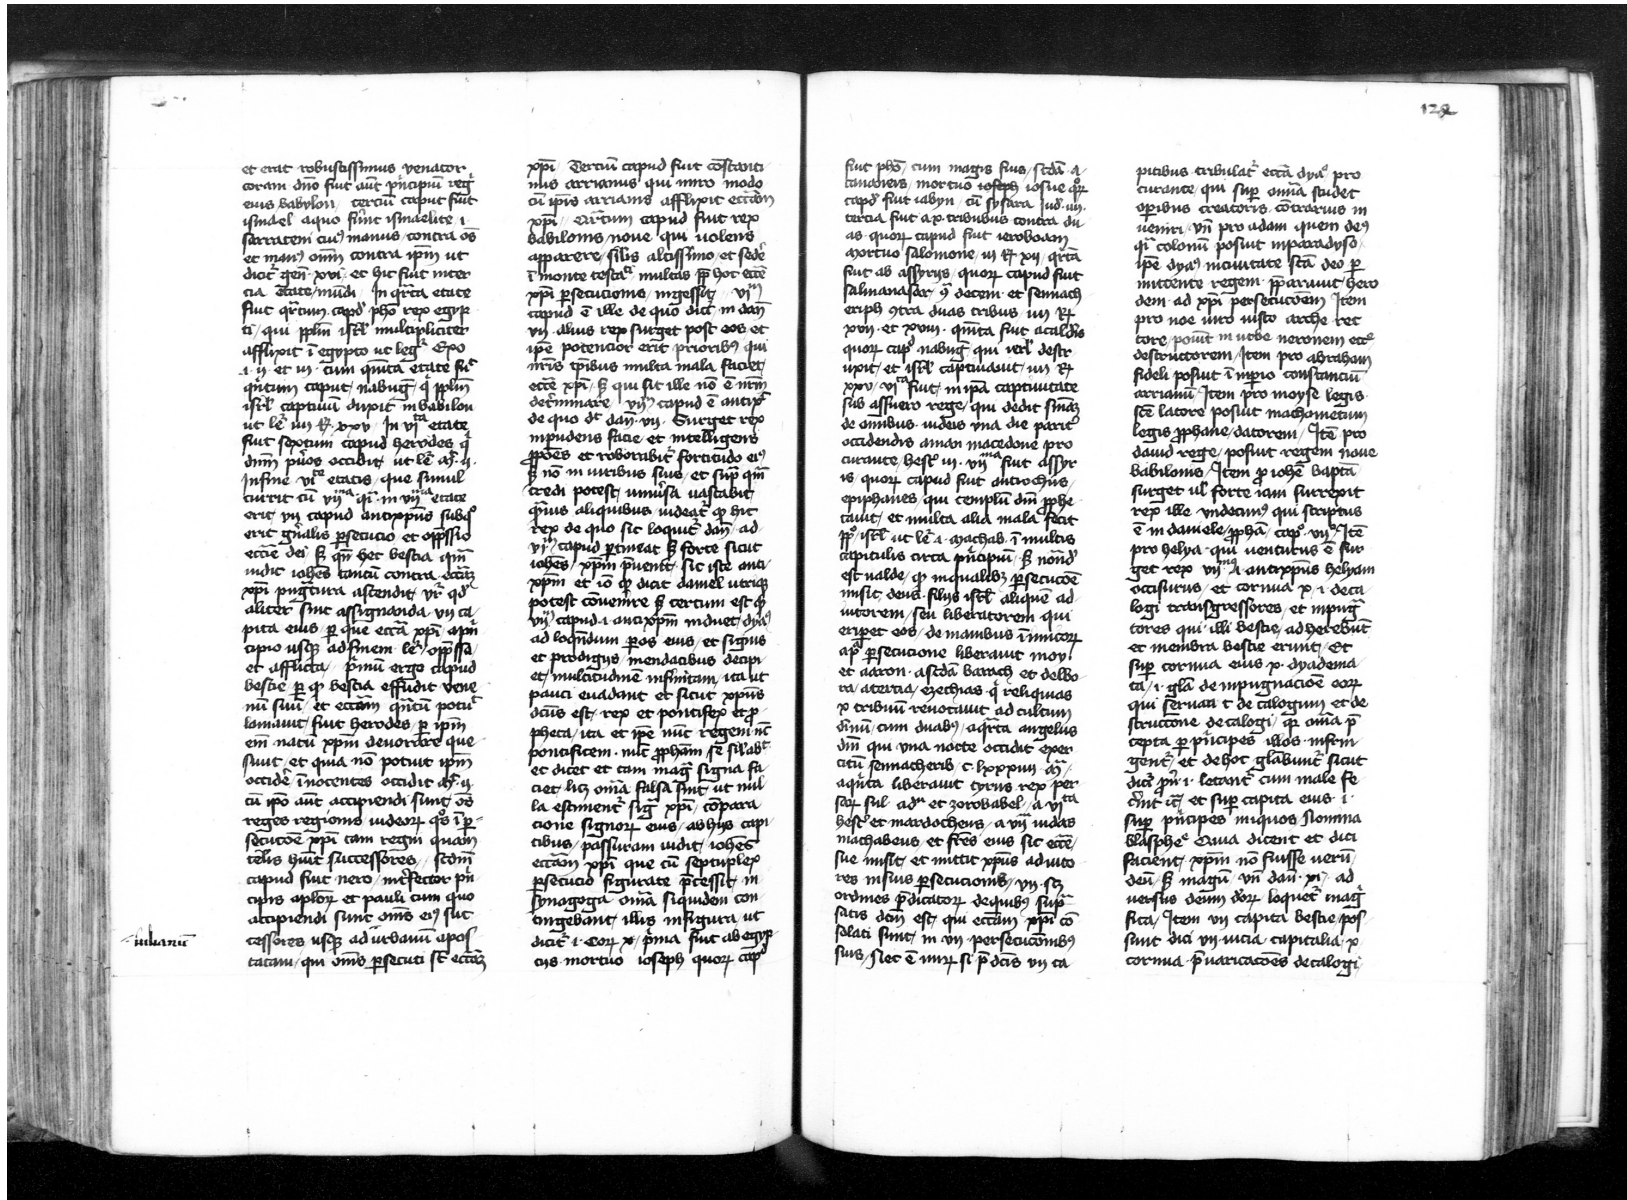 et erat robustissimus venator
coram dño fuit aut̃ p̃ncipiũ reg̃
eius babylon / terciũ caput fuit
ismael a quo fuer̃t ismaelite .i.
sarraceni cui9 manus contra os̃
et man9 om̃ contra ip̃m ut
dicit̃ gen̄ . xvi . et hic fuit in ter
cia etate mũdi / In q̃rta etate
fuit q̃rtum . capd̃ phõ rex egyp
ti / qui pplm̃ isrl̃ multipliciter
afflixit ĩ egypto ut leg̃ Exo
.i. ii. et iii. cum quinta etate fuĩ
q̃ntum caput / nabug̃ / q̃ pplm̃
isrl̃ captiuũ duxit in babilon
ut le᷑ iiii R̃ . xxv / In vi ta etate
fuit sextum capud herodes q̃
dñm pueros occidit / ut le᷑ m̃ . ii .
in fine vi te etatis / que simul
currit cũ vii ma qr̃ in vii ma etate
erit / vii capud antixp̃us sub q̊
erit gñalis p̱secucio et opp̃ssio
eccl̃ie dei / sꝫ qm̃ hec bestia qm̃
uidit ioh̃es tantũ contra eccl̃iaꝫ
xp̃i pug̃tura ascendit / vr̃ qd̃
aliter sint assignanda vii ca
pita eius / p̱ que eccl̃ia xp̃i ap̃n
cipio usqꝫ ad finem le᷑ opp̃ssa
et afflicta / p̃mũ ergo capud
bestie p̱ qd̃ bestia effudit vene
nũ suũ / et eccl̃iam q̃ntũ potuĩt
lamauit / fuit herodes / p̱ ip̃m
em̃ natũ xp̃m deuorare que
siuit / et quia nõ potuit ip̃m
occide᷑ ĩnocentes occidit m̃ . ii
cũ ip̃o aut̃ accipiendi sunt os̃
reges regionis iudeor̃ / q̊s ĩ p̱
secucõe xp̃i tam regni quam
sceleris hũit successores / scdm̃
capud fuit nero / int̃fector p̃n
cipis ap̃lor̃ et pauli cum quo
accipiendi sunt om̃s ei9 suc
cessores usqꝫ ad urbanũ apos
tatam / qui om̃s p̱secuti st̃ eccl̃iaꝫ
iulianũ
xp̃i / Terciũ capud fuit cõstanti
nus arrianus qui miro modo
cũ ip̃is arrianis afflixit eccl̃iam
xp̃i / Quartum capud fuit rex
babilonis / noue qui uolens
apparere / sil̃is altissimo / et sede᷑
ĩ monte testa᷑ . multas pp̃ hoc eccl̃ie
xp̃i p̱secuciones / ingessit / vi m
capud ẽ ille de quo dicit̃ in dañ
vii . alius rex surget post eos et
ip̃e potencior erit priorib9 qui
nr̃is tp̃ibus multa mala faciet /
eccl̃ie xp̃i / sꝫ qui sit ille nõ ẽ nr̃m
det̃minare / vii m capud ẽ antixp̃s
de quo dc̃ dañ . vii . Surget rex
inpudens facie et intelligens
ꝓp̃õnes et roborabit̃ fortitudo ei9
sꝫ nõ in uiribus suis / et sup̃ qm̃
credi potest / uniu᷑sa uastabit /
q̃uis aliquibus uideat̃ qd̃ hic
rex de quo sic loquit̃ dañ . ad
vi m capud p̱tineat sꝫ forte sicut
ioh̃es / xp̃m p̃uenit / sic iste anti
xp̃m et iõ qd̃ dicit daniel utriqꝫ
potest cõuenire sꝫ certum est qd̃
vii m capud .i. antixp̃m induet / dya9
ad loqñdum p̱ os eius / et signis
et prodigijs / mendacibus decipi
et / multitudinẽ infinitam / ita ut
pauci euadant et sicut xp̃us
dictus est / rex et pontifex et ꝓ
pheta / ita et ip̃e nũc regem nũc
pontificem . nũc ꝓpham̃ se sil̃abit
et dicet et tam mag̃ signa fa
ciet / licꝫ om̃ia falsa sint ut nul
la estiment̃ sig̃ xp̃i / cõpara
cione signor̃ eius / ab hijs capi
tibus / passuram uidit / ioh̃es
eccl̃iam xp̃i que cũ septuplex
p̱secucio figurate p̃cessit / in
synagoga om̃ia siquidem con
tingebant / illis in figura ut
dicit̃ .i. Cor̃ x / p̃ma fuit ab egyp
ciis mortuo ioseph quor̃ capd̃
129
fuit phõ / cum magis suis / scdã a
cananeis / mortuo ioseph iosue q̊r̃
capd̃ fuit iabyn / cũ sysara iud̃ . iiii .
tercia fuit a x . tribubus contra du
as quor̃ capud fuit ieroboam
mortuo salomone / iii R̃ xii / q̃rta
fuit ab assyrijs / quor̃ capud fuit
salmanasar / 9̃ decem . et sennach
eriph 9̃tra duas tribus / iiii R̃
xvii . et xviii . quĩta fuit a caldeis
quor̃ cap̊ nabug̃ / qui ierl̃ destr
uxit / et isrl̃ captiuauit / iiii R̃
xxv / vi ta fuit / in ip̃a captiuitate
sub assuero rege / qui dedit sm̃iaꝫ
de omnibus iudeis una die parit̃
occidendis aman macedone pro
curante / hest̃ iii . vii ma fuit assyr
iis quor̃ capud fuit antiochus /
epiphanes / qui templũ dñi ꝓphe
nauit / et multa alia mala fecit
pp̊ isrl̃ ut le᷑ .i. machab . ĩ multis
capitulis circa p̃ncipiũ / sꝫ nõnd̃
est ualde / qd̃ in qualibꝫ p̱secucõe
misit / deus . filijs isrl̃ aliquẽ ad
iutorem / seu liberatorem qui
eripet eos / de manibus ĩnimicor̃
a p̃ p̱secucione liberauit moy
et aaron . a scdã barach et delbo
ra / a tercia / ezechias q̃ reliquias
x tribuũ reuocauit ad cultum
diuinũ / cum duab9 / a q̃rta angelus
dñi qui una nocte occidit exer
citũ sennacherib / c . lxxxv m̃
a q̃nta liberauit cyrus rex per
sar̃ sil̃ . ad n̄ et zorobabel / a vi ta
hest̃ et mardocheus / a vii iudas
machabeus / et fr̃es eius sic eccl̃ie
sue misit / et mittit xp̃us adiuto
res in suis p̱secucionib9 / vii . scꝫ
ordines p̃dicator̃ de quib9 sup̃
satis dictũ est / qui eccl̃iam xp̃i cõ
solati sunt / in vii persecucõnib9
suis / Nec ẽ mir̃ si p̃dc̃is vii ca
pitibus tribulat̃ eccl̃ia dya9 pro
curante / qui sup̱ om̃ia studet
op̱ibus creatoris . cõtrarius in
ueniri / vñ pro adam quem deus
qr̃ colonũ posuit in paradyso .
ip̃e dya9 in ciuitate scã deo p̱
mittente regem . pp̃arauit / hero
dem . ad xp̃i persecucõem / Item
pro noe uiro iusto arche rec
tore / ponit in urbe neronem eccl̃ie
destructorem / Item pro abraham
fideli posuit ĩ inp̱io constanciũ
arrianũ / Item pro moyse legis
scẽ latore posuit machometum
legis ꝓphane / datorem / Itẽ pro
dauid rege / posuit regem noue
babilonis / Item ꝓ ioh̃e bapta
surget uel forte iam surrexit
rex ille vndecim9 qui scriptus
ẽ in daniele / ꝓpha / cap̊ . vii / Itẽ
pro helya . qui uenturus ẽ sur
get rex vii mus .i. antixp̃us helyam
occisurus / et cornua x .i. deca
logi transgressores / et inpug̃
tores qui illi bestie / adherebũt
et membra bestie erunt / Et
sup̱ cornua eius x . dyadema
ta .i. gl̃ia de inpugnacõe eor̃
qui seruant decalogum et de
structione decalogi / qr̃ om̃ia p̃
cepta p̱ p̃ncipes illos . infrin
gent̃ / et de hoc gl̃iabunt̃ sicut
dicit̃ pr̃ .i. letant̃ cum male fe
cerint ic̃ / et sup̱ capita eius .i.
sup̱ p̃ncipes iniquos Nomina
blasphẽ Quia dicent et dici
facient / xp̃m nõ fuisse uerũ
deũ / sꝫ magũ / vñ dañ . xi . ad
uersus deum deor̃ loquet̃ mag̃
fica / Item vii capita bestie / pos
sunt dici vii uicia capitalia / x
cornua p̃uaricacões decalogi